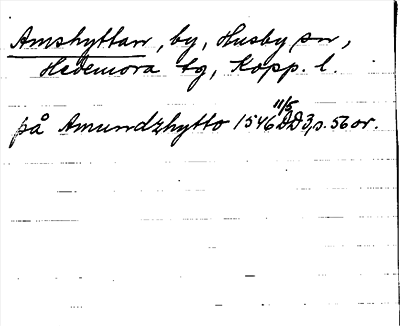 Amshyttan, by, Husby sn,
Hedemora bg, Kopp. l.
på Amundzhytto 1546 11/5 DD 3, s. 56 or.